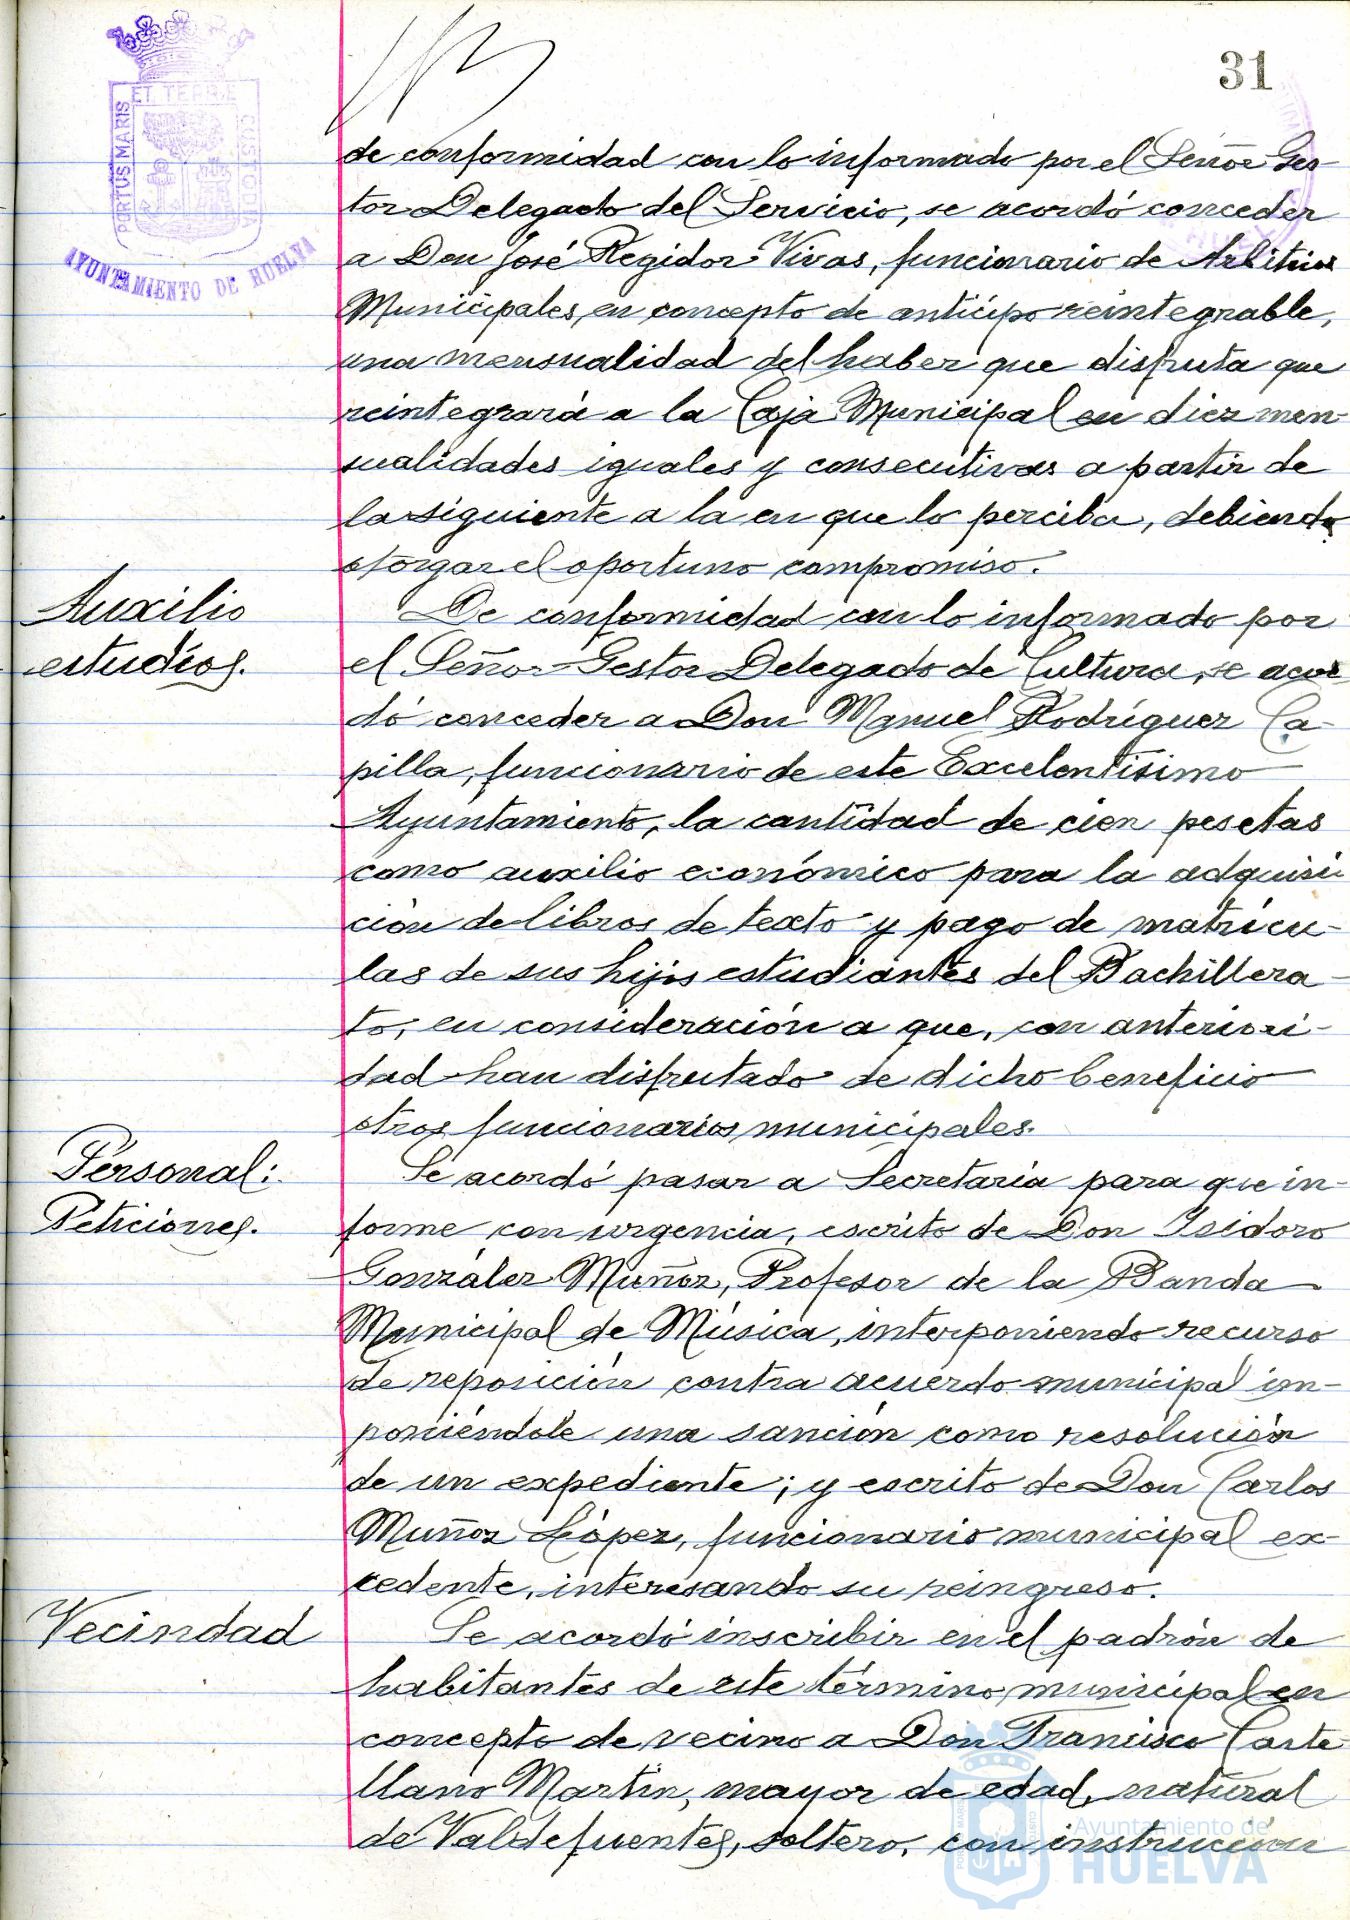 31
PORTUS MARIS ET TERRE CUSTODIA
AYUNTAMIENTO DE HUELVA
de conformidad con lo informado por el Señor Ges-
tor Delegado del Servicio, se acordó conceder
a Don José Regidor Vivas, funcionario de Arbitrios
Municipales, en concepto de anticipo reintegrable,
una mensualidad del haber que disfruta que
reintegrará a la Caja Municipal en diez men-
sualidades iguales y consecutivas a partir de
la siguiente a la en que lo perciba, debiendo
otorgar el oportuno compromiso.
Auxilio
estudios.
De conformidad con lo informado por
el Señor Gestor Delegado de Cultura, se acor-
dó conceder a Don Manuel Rodríguez Ca-
pilla, funcionario de este Excelentísimo
Ayuntamiento, la cantidad de cien pesetas
como auxilio económico para la adquisi-
ción de libros de texto y pago de matrícu-
las de sus hijos estudiantes del Bachillera-
to, en consideración a que, con anteriori-
dad han disfrutado de dicho beneficio
otros funcionarios municipales.
Personal:
Peticiones.
Se acordó pasar a Secretaría para que in-
forme con urgencia, escrito de Don Isidoro
González Muñoz, Profesor de la Banda
Municipal de Música, interponiendo recurso
de reposición contra acuerdo municipal im-
poniéndole una sanción como resolución
de un expediente; y escrito de Don Carlos
Muñoz López, funcionario municipal ex-
cedente, interesando su reingreso.
Vecindad
Se acordó inscribir en el padrón de
habitantes de este término municipal en
concepto de vecino a Don Francisco Caste-
llano Martin, mayor de edad, natural
de Valdefuentes, soltero, con instrucción
Ayuntamiento de
HUELVA